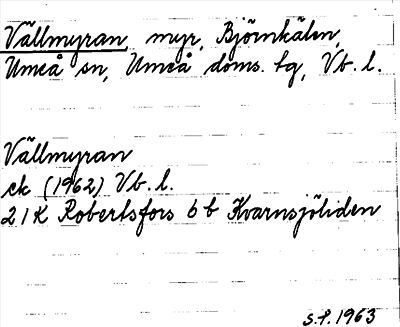 Vällmyran, myr, Björnkälen,
Umeå sn, Umeå doms. tg, Vb. l.
Vällmyran
ek (1962) Vb. l.
21K Robertsfors 6 b Kvarnsjöliden
S.P. 1963